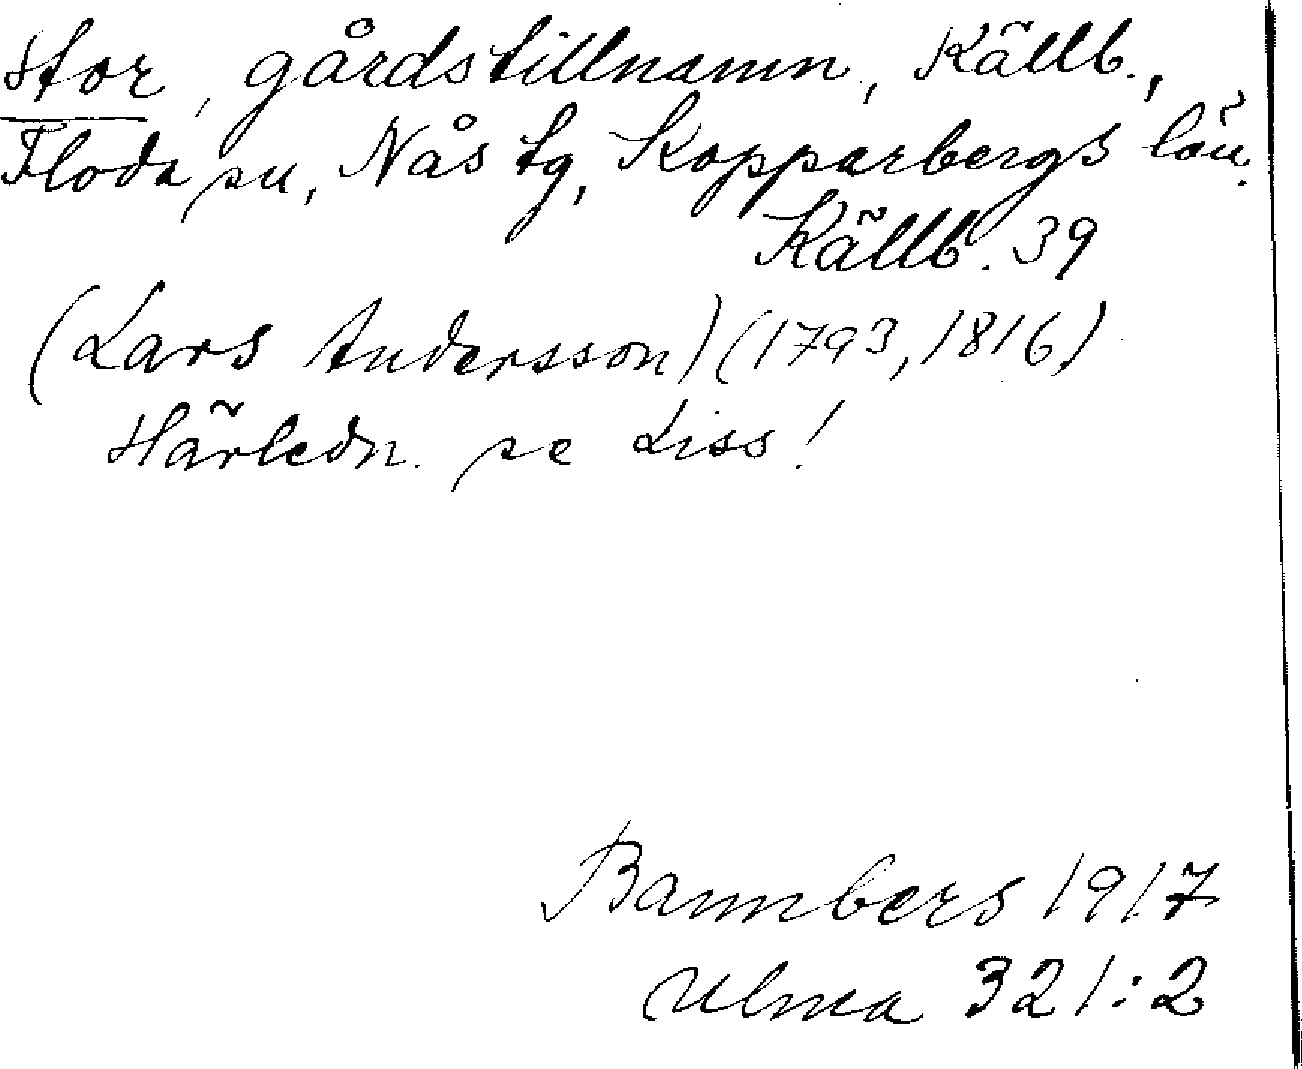 Stor, gårdstillnamn, Källb.,
Floda sn, Nås tg, Kopparbergs län.
Källb. 39
(Lars Andersson) (1793, 1816)
Härledn. se Liss!
Bannbers 1917
Ulma 321:2